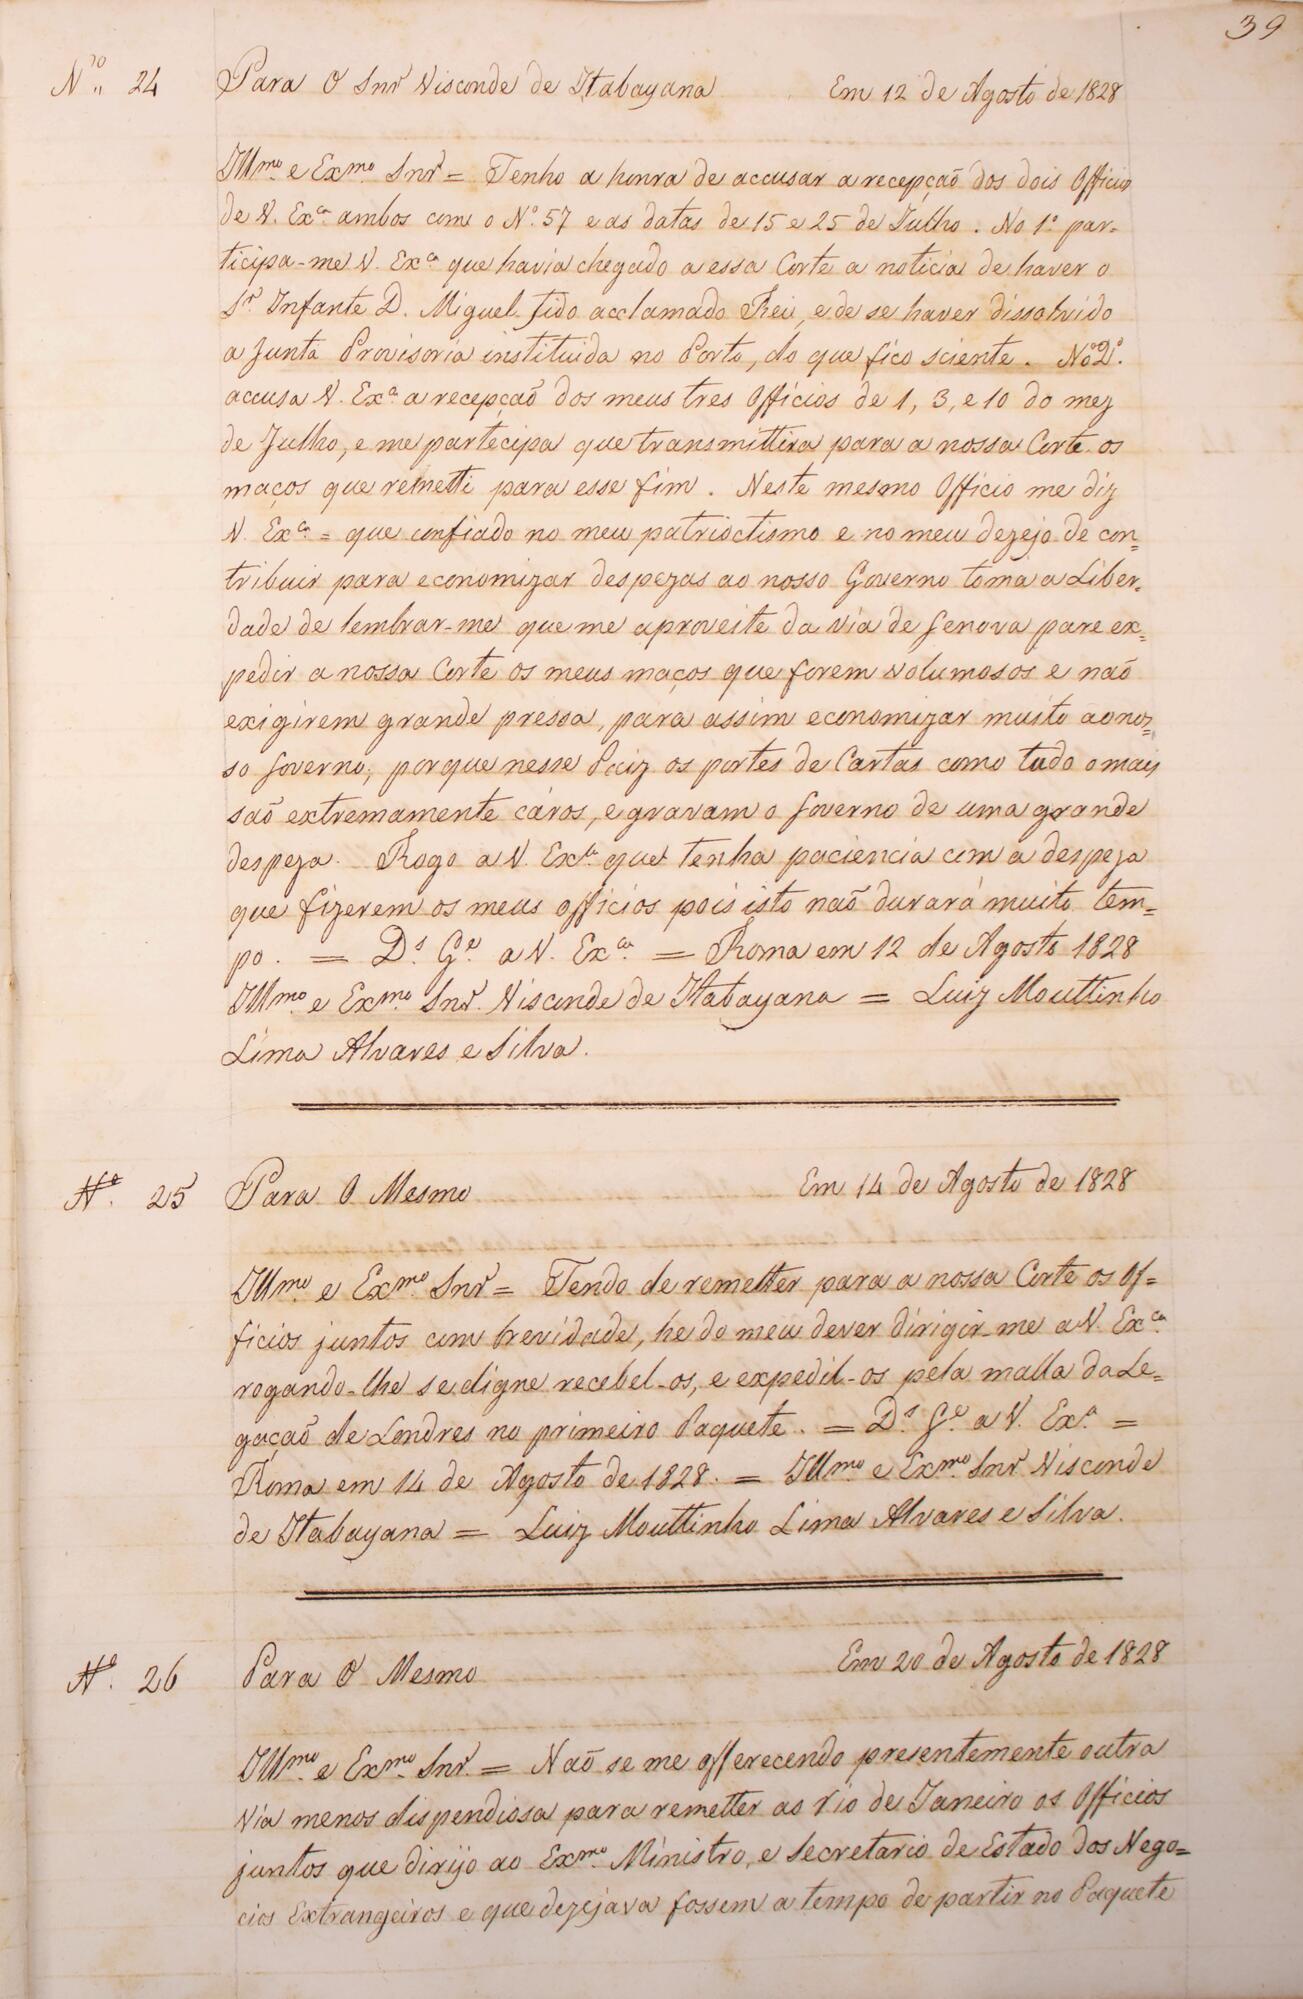 39
Nº 24 Para O Snr Visconde de Itabayana Em 12 de Agosto de 1828
Illmo. e Exmo. Snr = Tenho a honra de accusar a recepçaõ dos dois Officios
de V. Exca. ambos com o Nº. 57 e as datas de 15 e 25 de Julho. No 1º. par-
ticipa-me V. Exca. que havia chegado a essa Corte a noticia de haver o
Sr. Infante D. Miguel sido acclamado Rei, e de se haver dissolvido
a Junta Provisoria instituida no Porto, do que fico sciente. No 2º.
accusa V. Exca. a recepçaõ dos meus tres Officios de 1, 3, e 10 do mez
de Julho, e me partecipa que transmittira para a nossa Corte os
maços que remetti para esse fim. Neste mesmo Officio me diz
V. Exca. = que confiado no meu patrioctismo e no meu dezejo de con=
tribuir para economizar despezas ao nosso Governo toma a Liber=
dade de lembrar-me que me aproveite da via de Genova pare ex=
pedir a nossa Corte os meus maços que forem volumosos e naõ
exigirem grande pressa, para assim economizar muito ao nos=
so Governo; porque nesse Paiz os portes de Cartas como tudo o mais
saõ extremamente cáros, e gravam o Governo de uma grande
despeza. Rogo a V. Exca. que tenha paciencia com a despeza
que fizerem os meus officios pois isto naõ durará muito tem=
po. = Ds. Ge. a V. Exca. = Roma em 12 de Agosto 1828
Illmo. e Exmo. Snr. Visconde de Itabayana = Luiz Mouttinho
Lima Alvares e Silva.
Nº. 25 Para O Mesmo Em 14 de Agosto de 1828
Illmo. e Exmo. Snr = Tendo de remetter para a nossa Corte os Of=
ficios juntos com brevidade, he do meu dever dirigir-me a V. Exca.
rogando-lhe se digne recebel-os, e expedil-os pela malla da Le=
gaçaõ de Londres no primeiro Paquete. = Ds. Ge. a V. Exa. =
Roma em 14 de Agosto de 1828. = Illmo. e Exmo. Snr Visconde
de Itabayana = Luiz Mouttinho Lima Alvares e Silva.
Nº. 26 Para O Mesmo Em 20 de Agosto de 1828
Illmo. e Exmo. Snr. = Naõ se me offerecendo presentemente outra
via menos dispendiosa para remetter ao rio de Janeiro os Officios
juntos que dirijo ao Exmo. Ministro, e Secretario de Estado dos Nego=
cios Extrangeiros e que dezejava fossem a tempo de partir no Paquete